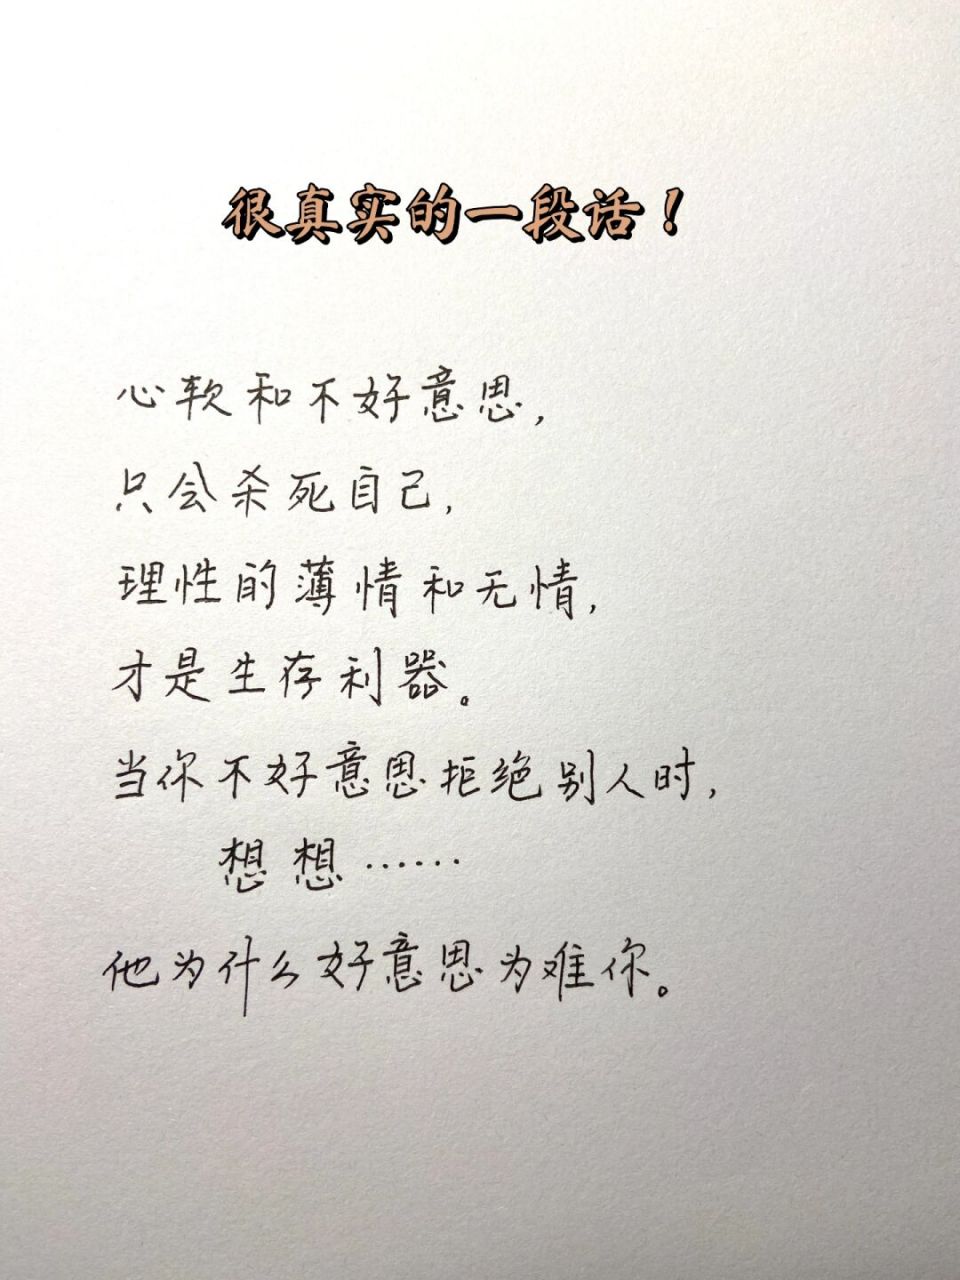 很真实的一段话！
心软和不好意思，
只会杀死自己，
理性的薄情和无情，
才是生存利器。
当你不好意思拒绝别人时，
想想……
他为什么好意思为难你。